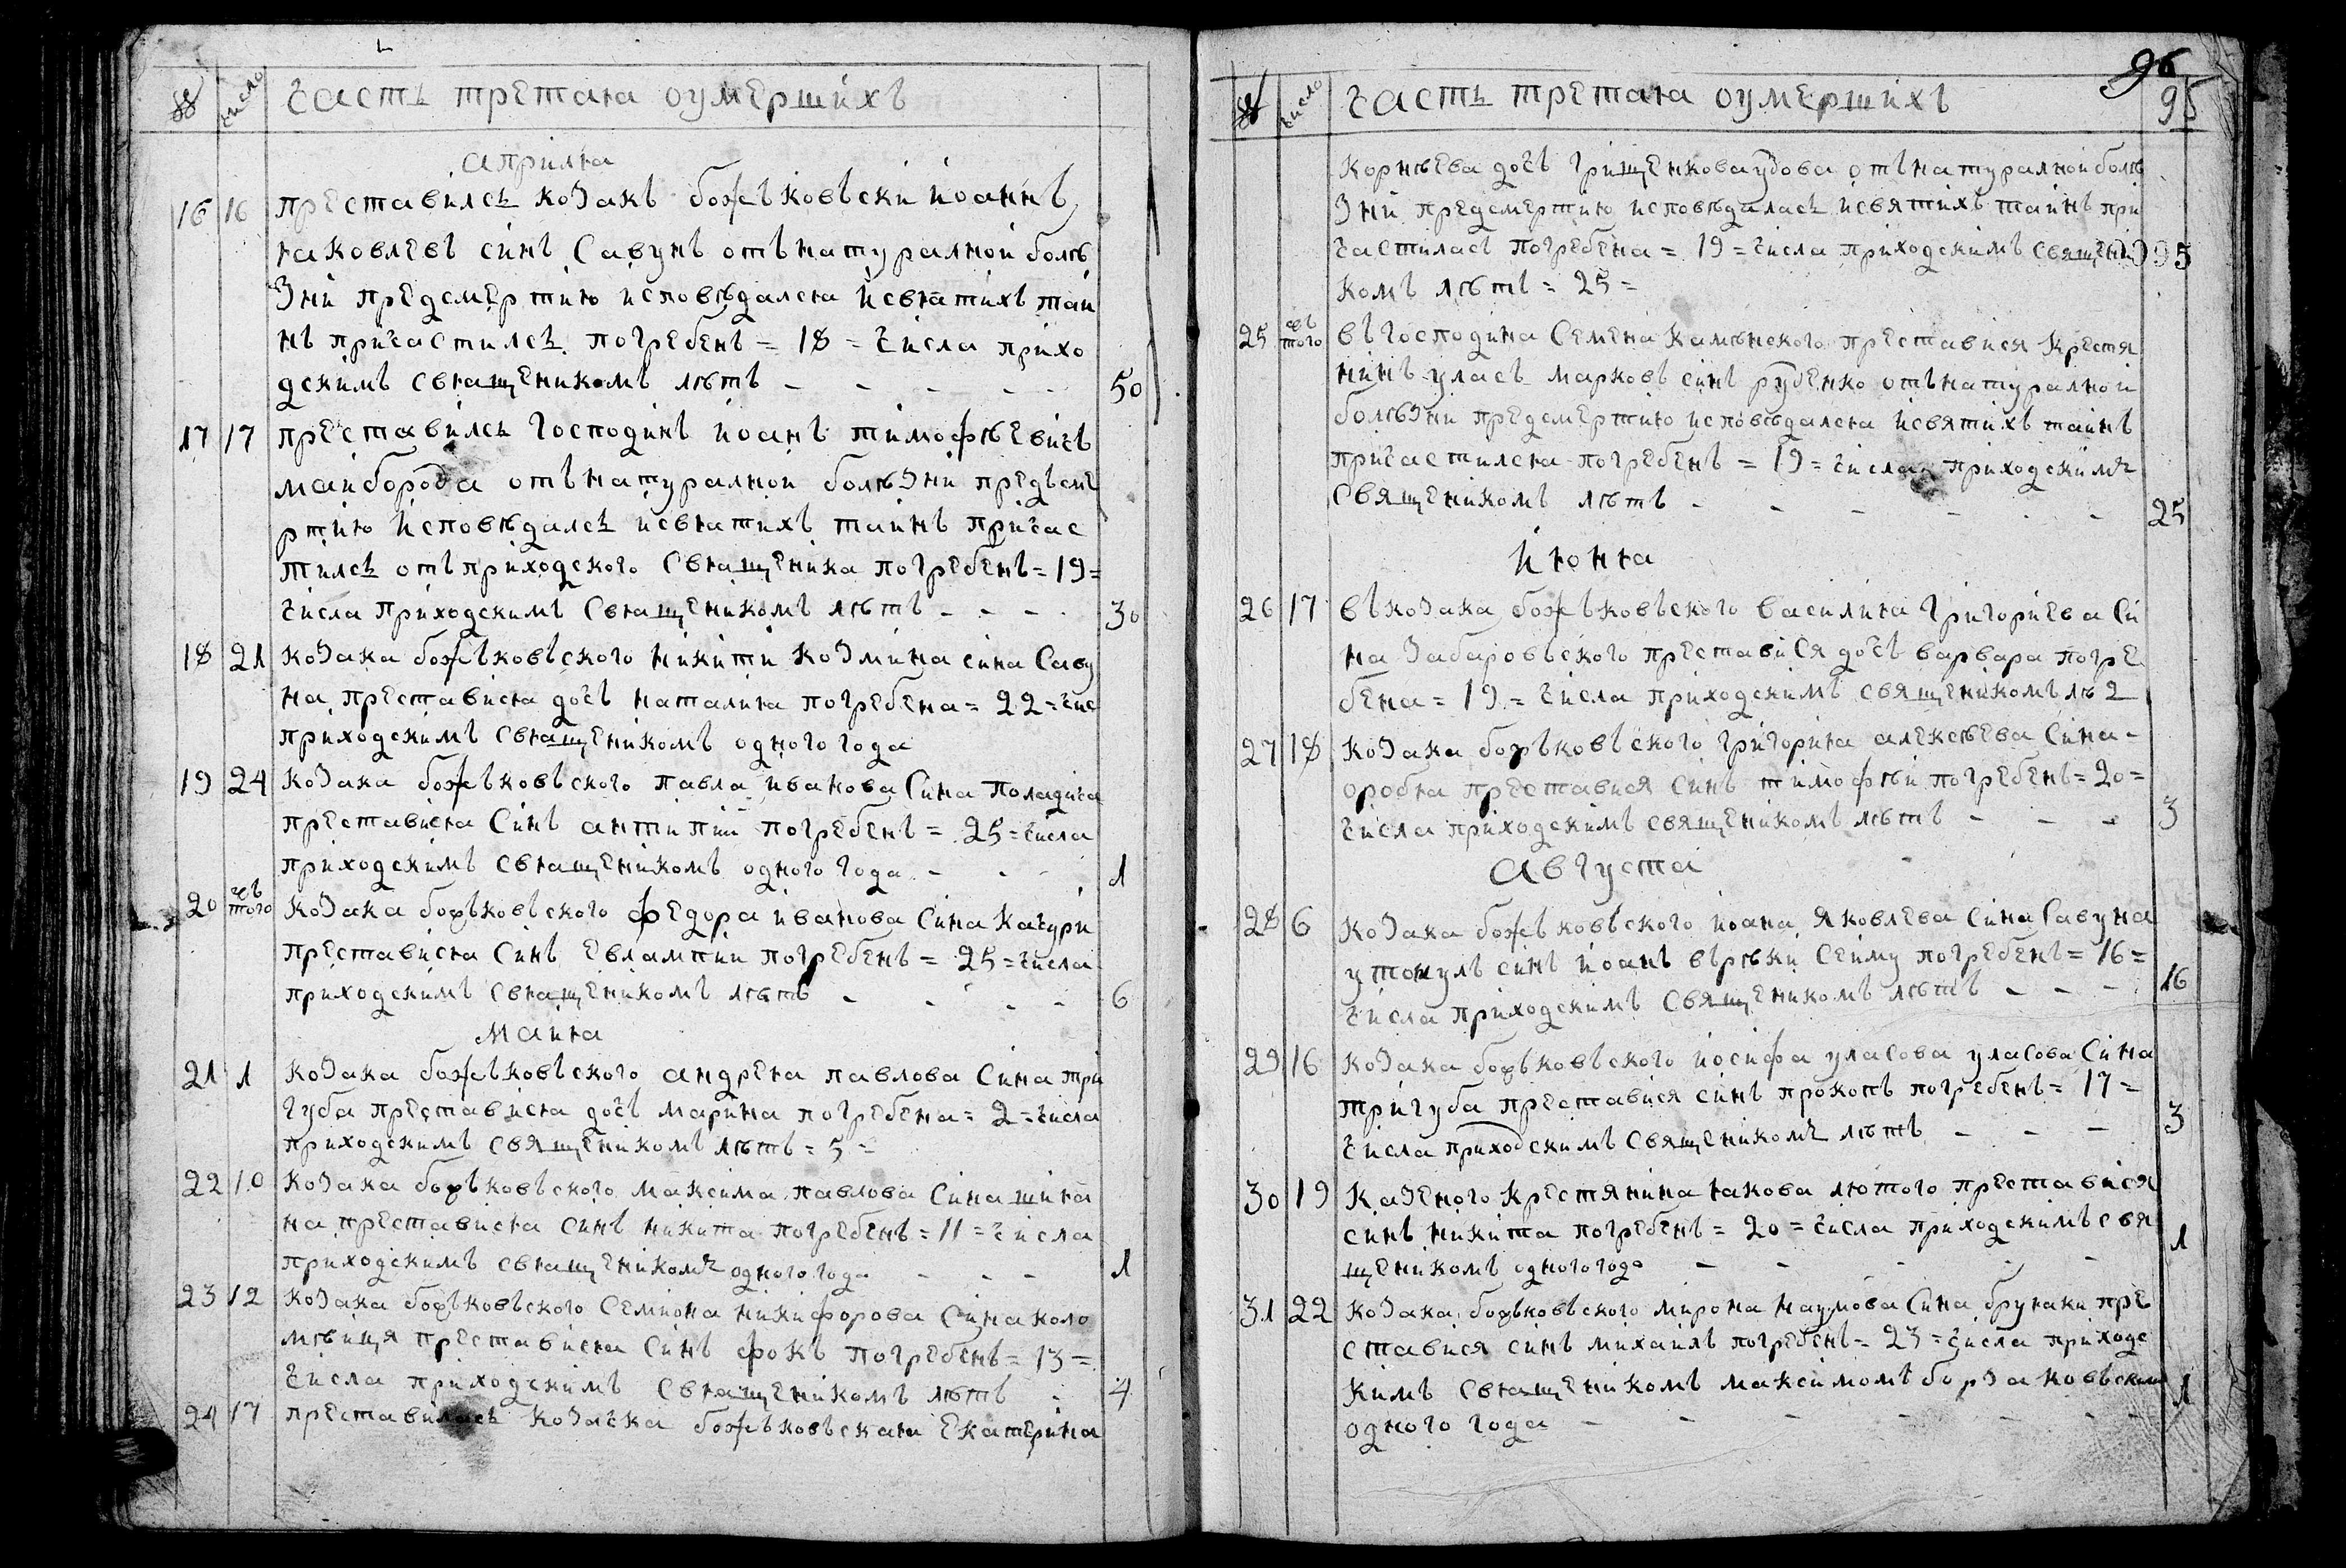 № число Часть третая оумершихъ
Априля
16 16 Преставилсь козакъ божъковъски Иоаннъ
Яковлевъ синъ Савунъ отъ натуралной болѣ
зни предсмертию исповѣдался и святихъ таи
нъ причастилсь погребенъ = 18 = числа прихо
дскимъ священикомъ лѣтъ - - - - - 50
17 17 Преставилсь господинъ иоанъ тимофѣевичъ
маиборода отъ натуралной болѣзни предъсме
ртию исповѣдалсь и святихъ таинъ причас
тилсь отъ приходского священика погребенъ = 19 =
числа приходскимъ священикомъ лѣтъ - - - - 30
18 21 козака божъковъского никити козмина сина Саву
на, преставися дочъ наталия погребена = 22 = чис
приходскимъ священикомъ одного года
19 24 козака божъковъского павла иванова Сина Поладича
преставися Синъ антипии погребенъ = 25 = числа
приходскимъ священикомъ одного года - - - 1
20 тогожъ козака божъковъского федора иванова Сина Качури
преставися Синъ Евлампии погребенъ = 25 = числа
приходскимъ священикомъ лѣтъ - - - - 6
маия
21 1 козака божъковъского андрея павлова Сина три
губа преставися дочъ марина погребена = 2 = числа
приходскимъ священикомъ лѣтъ = 5 =
22 10 козака божъковъского максима павлова Сина шина
на преставися Синъ никита погребенъ = 11 = числа
приходскимъ священикомъ одного года - - - 1
23 12 козака божъковъского Семиона никифорова Сина коло
мѣица преставися Синъ фокъ погребенъ = 13 =
числа приходскимъ священикомъ лѣтъ - 4
24 17 преставилась козачка божъковъская Екатерина
96
№ число Часть третая оумершихъ 95
Корнѣева дочъ грищенкова удова отъ натуралнои болѣ
зни предсмертию исповѣдаласъ и святихъ таинъ при
частиласъ погребена = 19 = числа приходскимъ священи 95
комъ лѣтъ = 25 =
25 тогожъ въ господина Семена Каменского преставися крестя
нинъ уласъ марковъ синъ руденко отъ натуралной
болѣзни предсмертию исповѣдался и святихъ таинъ
причастился погребенъ = 19 = числа приходскимъ
священикомъ лѣтъ - - - - - - 25
июня
26 17 въ козака божъковъского василия григориева Си
на Забаровъского преставися дочъ варвара погре
бена = 19 = числа приходскимъ священикомъ лѣ 2
27 18 козака божъковъского григория алексѣева Сина -
оробтя преставися синъ тимофѣй погребенъ = 20 =
числа приходскимъ священикомъ лѣтъ - - - 3
Августа
28 6 козака божъковъского иоана Яковлева Сина Савуна
утонулъ синъ иоанъ въ рѣки Сеиму погребенъ = 16 =
числа приходскимъ священикомъ лѣтъ - - - 16
29 16 козака божъковъского иосифа уласова уласова Сина
тригуба преставися синъ прокопъ погребенъ = 17 =
числа приходскимъ священикомъ лѣтъ - - - 3
30 19 Казеного крестянина якова лютого преставися
синъ никита погребенъ = 20 = числа приходскимъ свя
щеникомъ одного года - - - - - 1
31 22 козака божъковъского мирона наумова Сина бруяки пре
ставися синъ михаилъ погребенъ = 23 = числа приходс
кимъ священикомъ максимомъ борзаковъским 1
одного года - - - - - - -